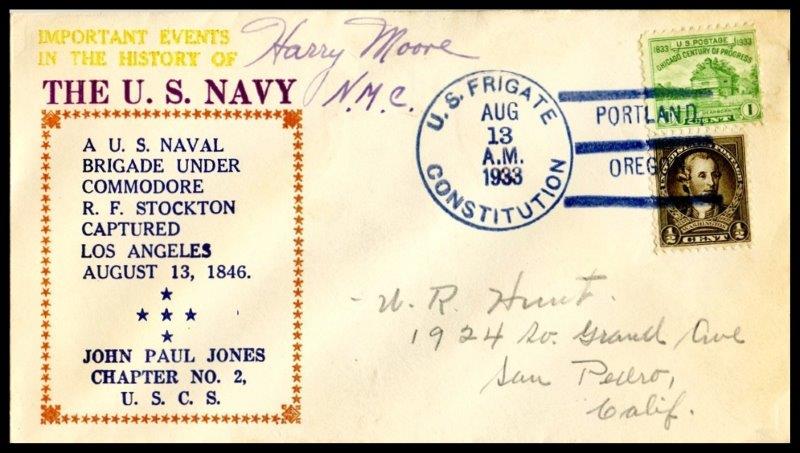 IMPORTANT EVENTS
IN THE HISTORY OF
THE U. S. NAVY
Harry Moore
N.M.C.
A U. S. NAVAL
BRIGADE UNDER
COMMODORE
R. F. STOCKTON
CAPTURED
LOS ANGELES
AUGUST 13, 1846.
JOHN PAUL JONES
CHAPTER NO. 2,
U. S. C. S.
U.S. FRIGATE
AUG
13
A.M.
1933
CONSTITUTION
PORTLAND
OREG
1833 U.S. POSTAGE 1933
CHICAGO CENTURY OF PROGRESS
1 CENT
WASHINGTON
1/2 CENT 1/2
W. R. Hunt.
1924 So. Grand Ave
San Pedro,
Calif.